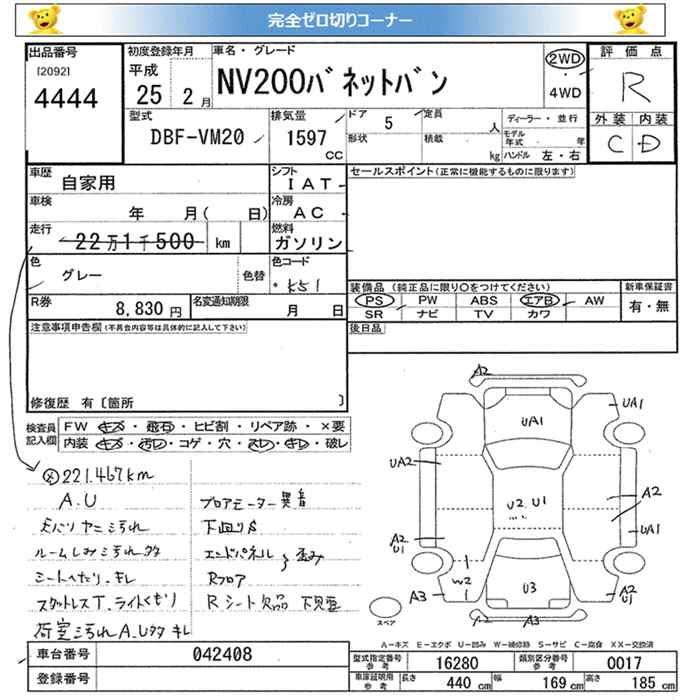 完全ゼロ切りコーナー
出品番号 初度登録年月 車名・グレード 評価点
[2092]
4444
平成 25 2月
NV200バネットバン
2WD・4WD
R
型式 排気量 ドア 定員 ディーラー・並行 外装 内装
DBF-VM20 1597 CC 5 人
形状 積載 kg モデル年式 年 ハンドル 左・右
C D
車歴 自家用 シフト IAT
セールスポイント(正常に機能するものに限ります)
車検 年 月( 日) 冷房 AC
走行 22万1千500 km 燃料 ガソリン
色 グレー 色替 色コード K51
装備品 (純正品に限り○をつけてください) 新車保証書
PS PW ABS エアB AW 有・無
SR ナビ TV カワ
R券 8,830円 名変通知期限 月 日
注意事項申告欄(不具合内容等は具体的に記入して下さい)
後日品
修復歴 有〔箇所 〕
検査員記入欄
FW キズ・飛石・ヒビ割・リペア跡・×要
内装 キズ・汚レ・コゲ・穴・スレ・キレ・破レ
221.467km
A.U
ブロアモーター異音
ルームしみ汚れタタ
下回りS
エンドパネル 歪み
シートへたり.キレ
Rフロア
スタットレスT.ライトくもり
Rシート欠品
荷室汚れA.Uタタ キレ
A2
UA1
UA1
UA2
U2 U1
A2
A2
U1
UA1
W2
U3
A3
A2
U1
A3
スペア
A-キズ E-エクボ U-凹み W-補修跡 S-サビ C-腐食 XX-交換済
車台番号 042408
型式指定番号 参考 16280 類別区分番号 参考 0017
登録番号
車庫証明用 参考 長さ 440cm 幅 169cm 高さ 185cm